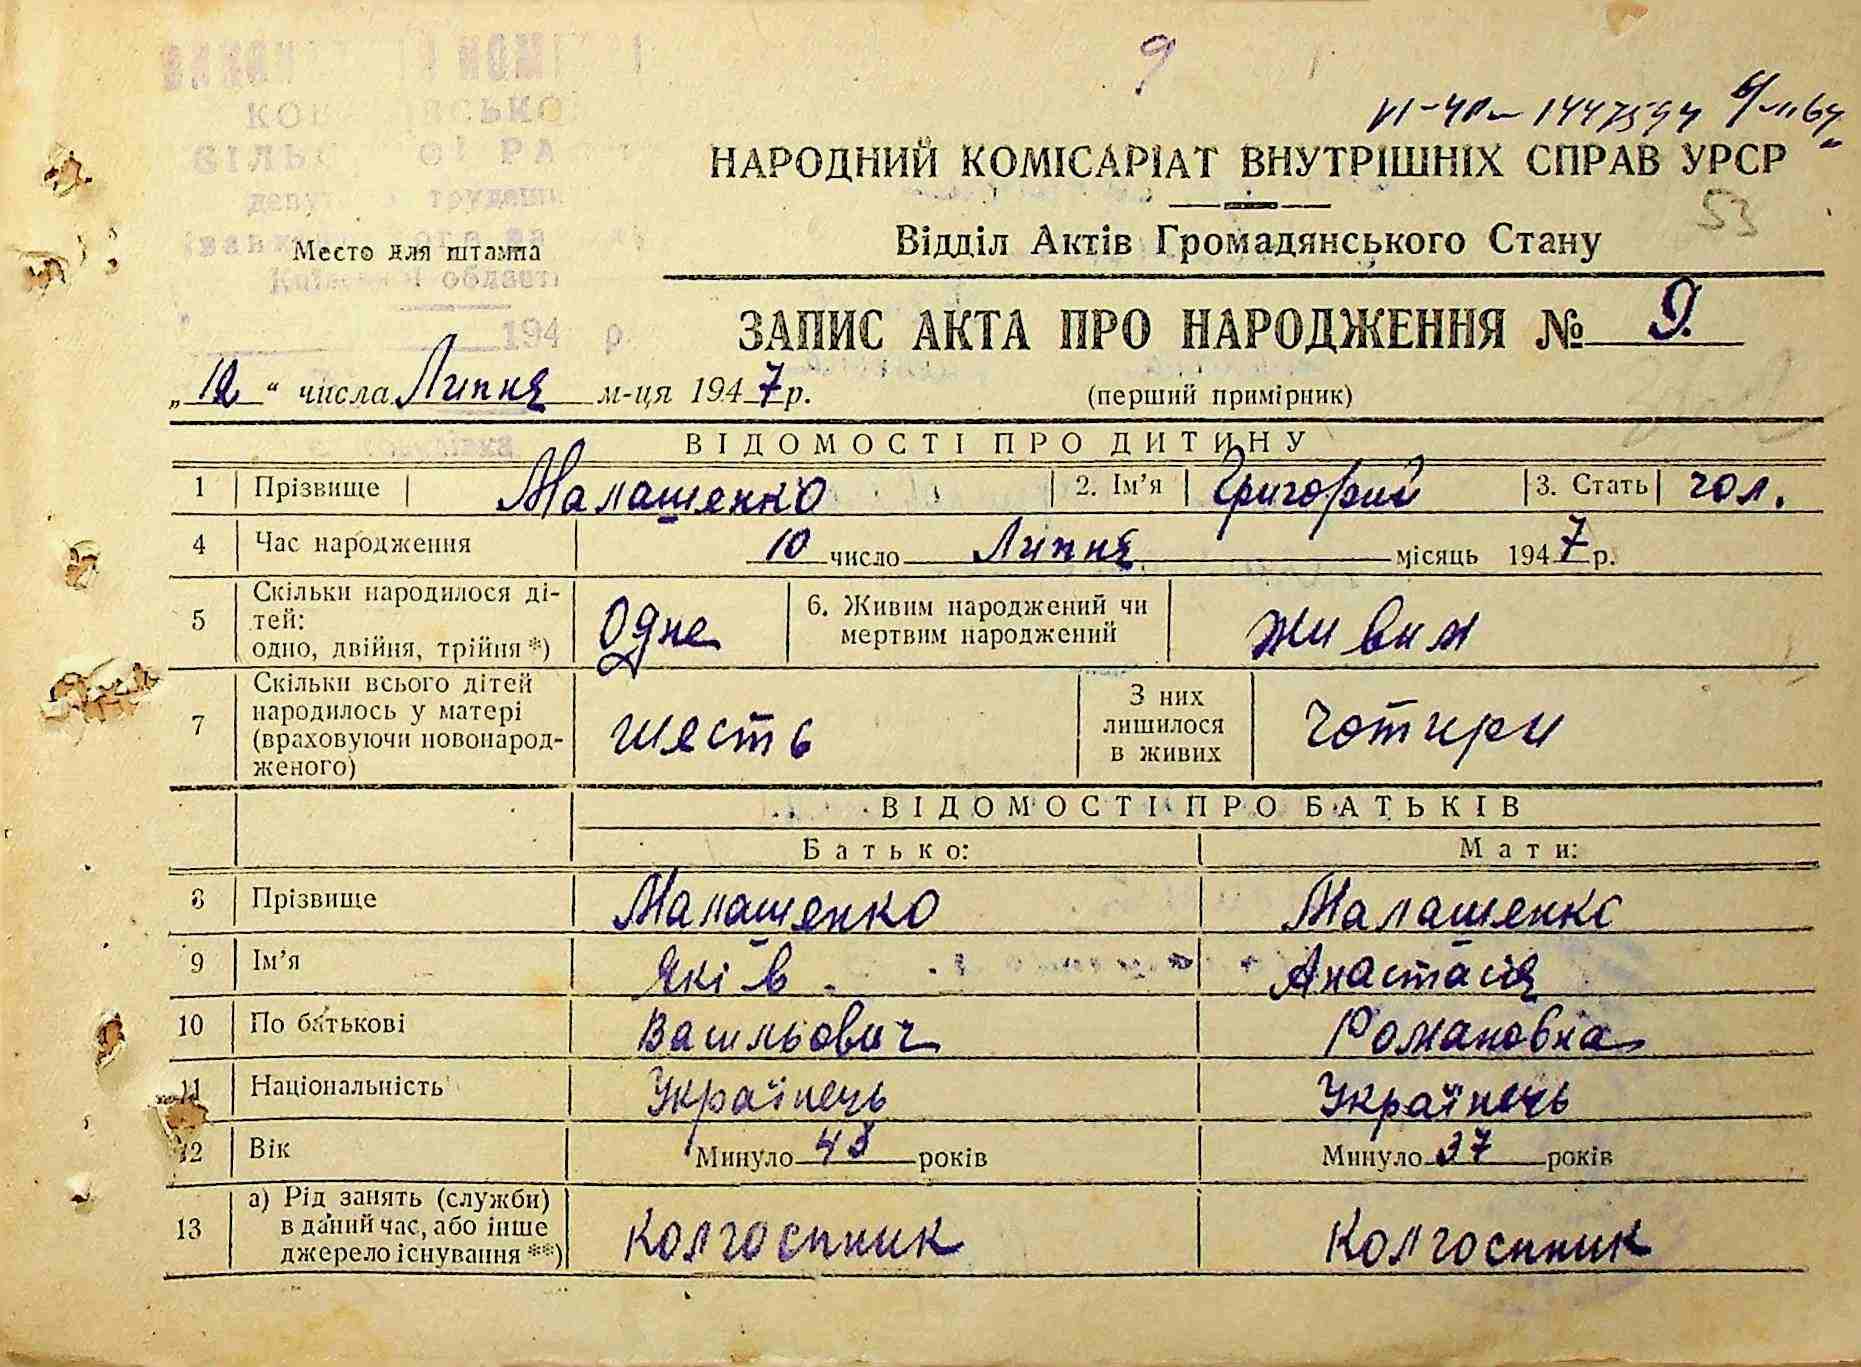 9
НАРОДНИЙ КОМІСАРІАТ ВНУТРІШНІХ СПРАВ УРСР
53
Место для штампа
Відділ Актів Громадянського Стану
області
194 р
ЗАПИС АКТА ПРО НАРОДЖЕННЯ № 9.
„12“ числа Липня м-ця 1947 р.
(перший примірник)
ВІДОМОСТІ ПРО ДИТИНУ
1 Прізвище Малашенко 2. Ім’я Григорий 3. Стать чол.
4 Час народження 10 число Липня місяць 1947 р.
5 Скільки народилося ді-
тей:
одно, двійня, трійня *) Одне 6. Живим народжений чи
мертвим народжений Живим
7 Скільки всього дітей
народилось у матері
(враховуючи новонарод-
женого) шесть З них
лишилося
в живих чотири
ВІДОМОСТІ ПРО БАТЬКІВ
Батько: Мати:
8 Прізвище Малашенко Малашенко
9 Ім’я Яків Анастасія
10 По батькові Васильович Романовна
11 Національність Українець Українець
12 Вік Минуло років Минуло 37 років
13 а) Рід занять (служби)
в даний час, або інше
джерело існування **) Колгоспник Колгоспник